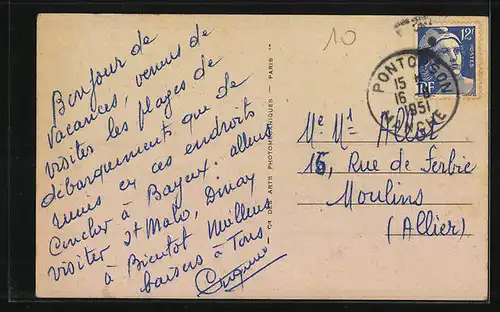 Bonjour de
vacances, venons de
visiter les plages de
débarquements que de
ruines en ces endroits
coucher à Bayeux. allons
visiter St Malo, Dinan
à Bientôt Meilleurs
baisers à Tous
Cie DES ARTS PHOTOMÉCANIQUES - PARIS
10
12F
POSTES
RF
PONTORSON
15 H
16 -8
1951
MANCHE
Me Mr Allot
15, Rue de Ferbie
Moulins
(Allier)